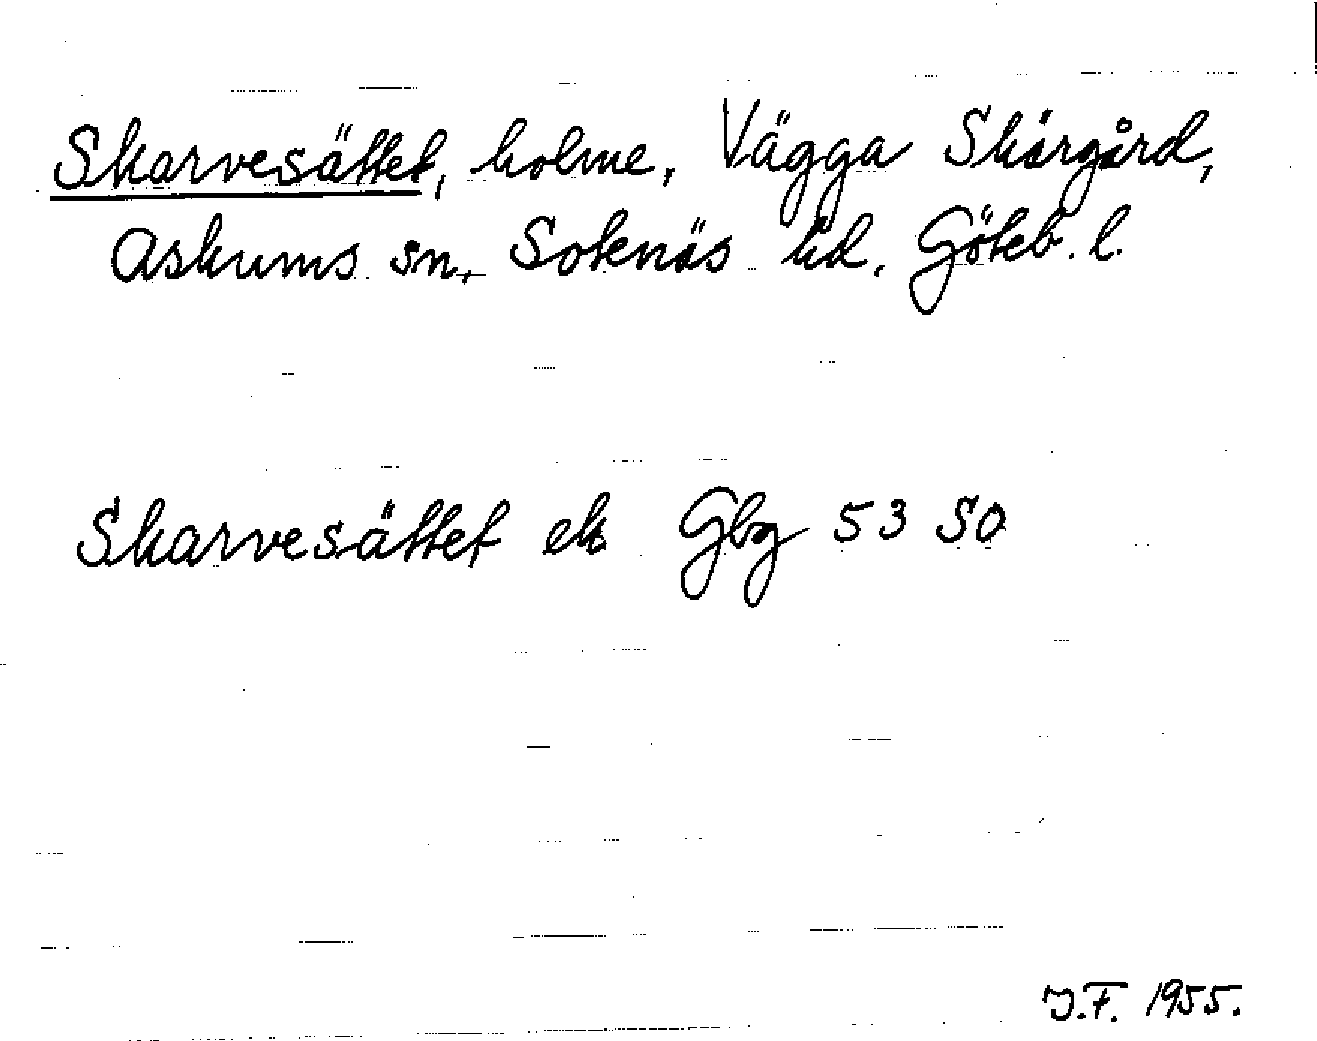 Skarvesättet, holme, Vägga Skärgård,
Askums sn, Sotenäs hd, Göteb. l.
Skarvesättet ek Gbg 53 SO
J.F. 1955.